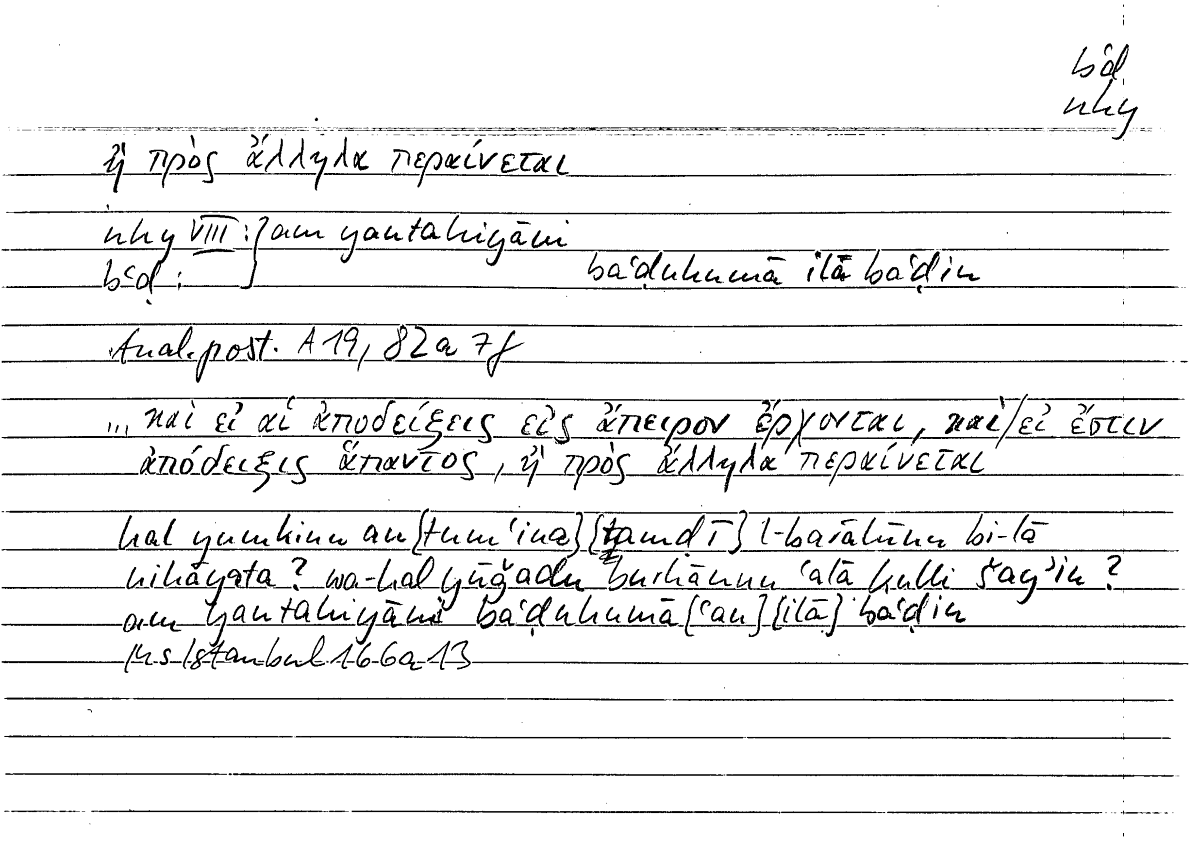 bʿḍ
nhy
ἢ πρὸς ἄλληλα περαίνεται
nhy VIII : } am yantahiyāni
bʿḍ : baʿḍuhumā ilā baʿḍin
Anal. post. A 19, 82a 7f
... καὶ εἰ αἱ ἀποδείξεις εἰς ἄπειρον ἔρχονται, καὶ / εἰ ἔστιν
ἀπόδειξις ἅπαντος, ἢ πρὸς ἄλληλα περαίνεται
hal yumkinu an {tumʿina} {tamḍī} l-barāhīnu bi-lā
nihāyata? wa-hal yūǧadu burhānun ʿalā kulli šayʾin?
am yantahiyāni baʿḍuhumā {ʿan} {ilā} baʿḍin
Hs Istanbul 166a 13